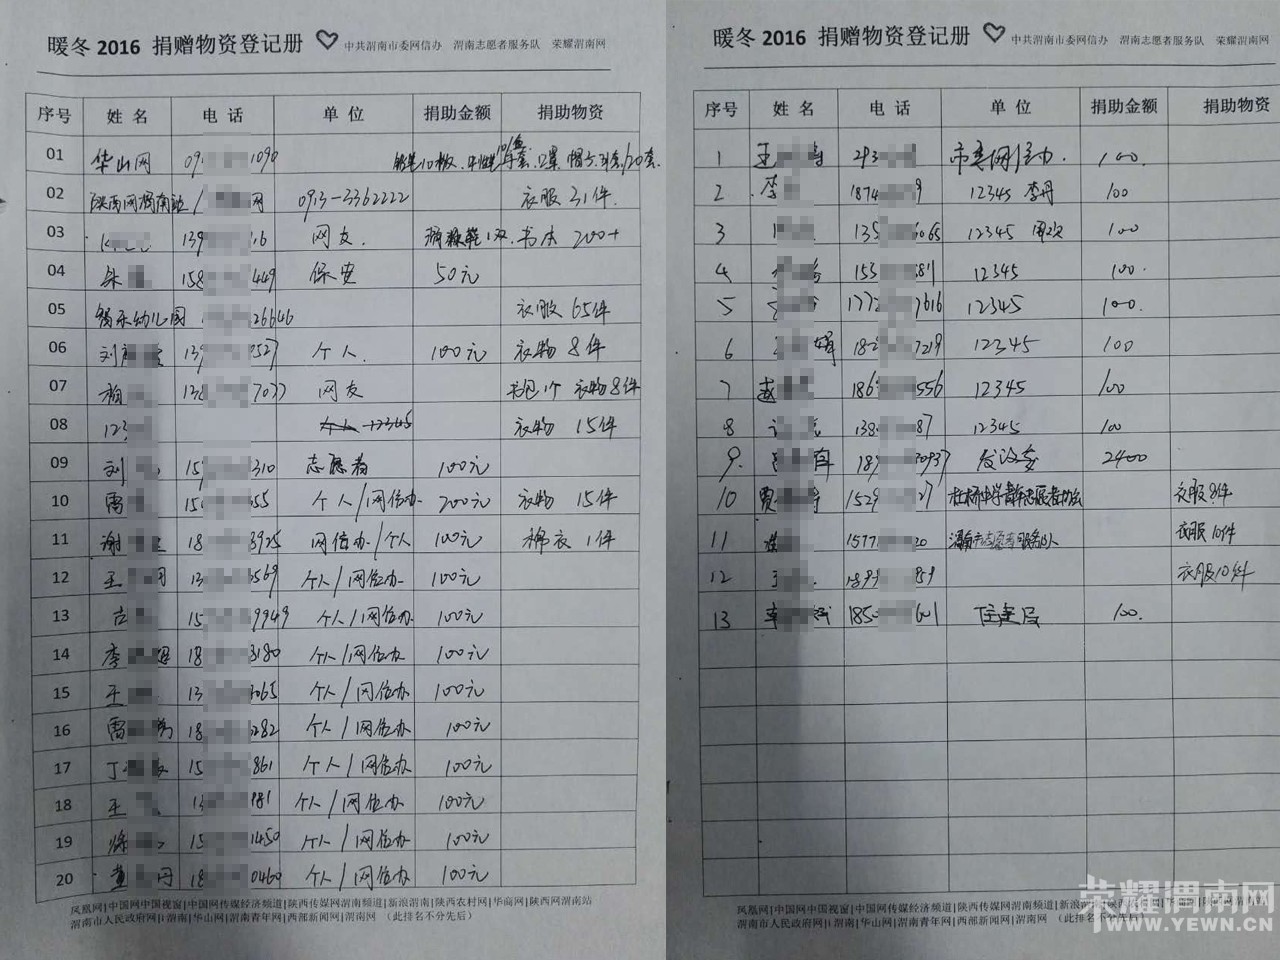 暖冬 2016 捐赠物资登记册 中共渭南市委网信办 渭南志愿者服务队 荣耀渭南网
序号 姓名 电话 单位 捐助金额 捐助物资
01 华山网 09 1090
02 陕西网渭南站/ 网 0913-3362222 衣服 31件
03 139 16 网友 书本 200+
04 朱 158 449 保安 50元
05 幼儿园 26646 衣服 65件
06 刘 139 527 个人 100元 衣物 8件
07 138 7037 网友 书包1个 衣物8件
08 123 12345 衣物 15件
09 刘 15 310 志愿者 100元
10 雷 15 55 个人/网信办 200元 衣物 15件
11 谢 18 3925 网信办/个人 100元 棉衣 1件
12 王 13 3569 个人/网信办 100元
13 15 9949 个人/网信办 100元
14 李 18 3180 个人/网信办 100元
15 王 13 065 个人/网信办 100元
16 雷 18 282 个人/网信办 100元
17 丁 15 861 个人/网信办 100元
18 王 13 981 个人/网信办 100元
19 15 1450 个人/网信办 100元
20 董 丹 18 0460 个人/网信办 100元
凤凰网|中国网中国视窗|中国网传媒经济频道|陕西传媒网渭南频道|新浪渭南|陕西农村网|华商网|陕西网渭南站
渭南市人民政府网|i渭南|华山网|渭南青年网|西部新闻网|渭南网 （此排名不分先后）
暖冬 2016 捐赠物资登记册 中共渭南市委网信办 渭南志愿者服务队 荣耀渭南网
序号 姓名 电话 单位 捐助金额 捐助物资
1 王 293 市委网信办 100
2 李 1874 9 12345 李丹 100
3 135 6065 12345 100
4 153 881 12345 100
5 1772 7616 12345 100
6 娟 182 7219 12345 100
7 赵 186 556 12345 100
8 138 87 12345 100
9 18 30937 发改委 2400
10 贾 1529 27 衣服8件
11 1577 20 衣服10件
12 王 1899 959 衣服10件
13 1850 601 住建局 100
凤凰网|中国网中国视窗|中国网传媒经济频道|陕西传媒网渭南频道|新浪
渭南市人民政府网|i渭南|华山网|渭南青年网|西部新闻网|渭南网 （此排名不分先后）
荣耀渭南网
WWW.YEWN.CN